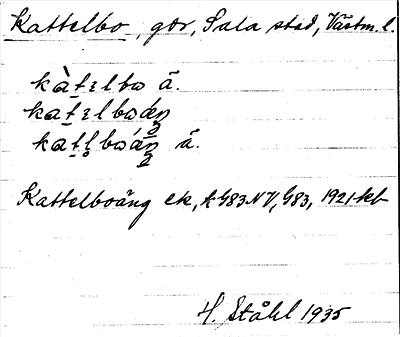 Kattelbo, gdr, Sala stad, Västm. l.
kàtɛlbɷ ā.
katɛlbɷáŋ
katl̥bɷáŋ ā.
Kattelboäng ek, k G83 NV, G83, 1921 kb
H. Ståhl 1935